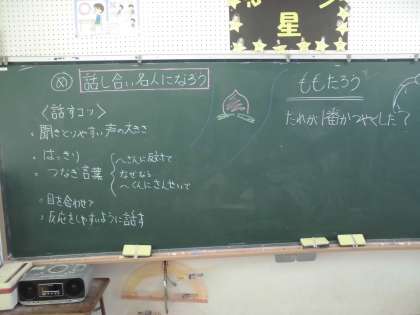 星
め 話し合い名人になろう
〈話すコツ〉
・聞きとりやすい声の大きさ
・はっきり
・つなぎ言葉
〜さんに反対で
なぜなら
〜くんにさんせいで
○目を合わせて
○反応をしやすいように話す
ももたろう
だれが1番かつやくした？